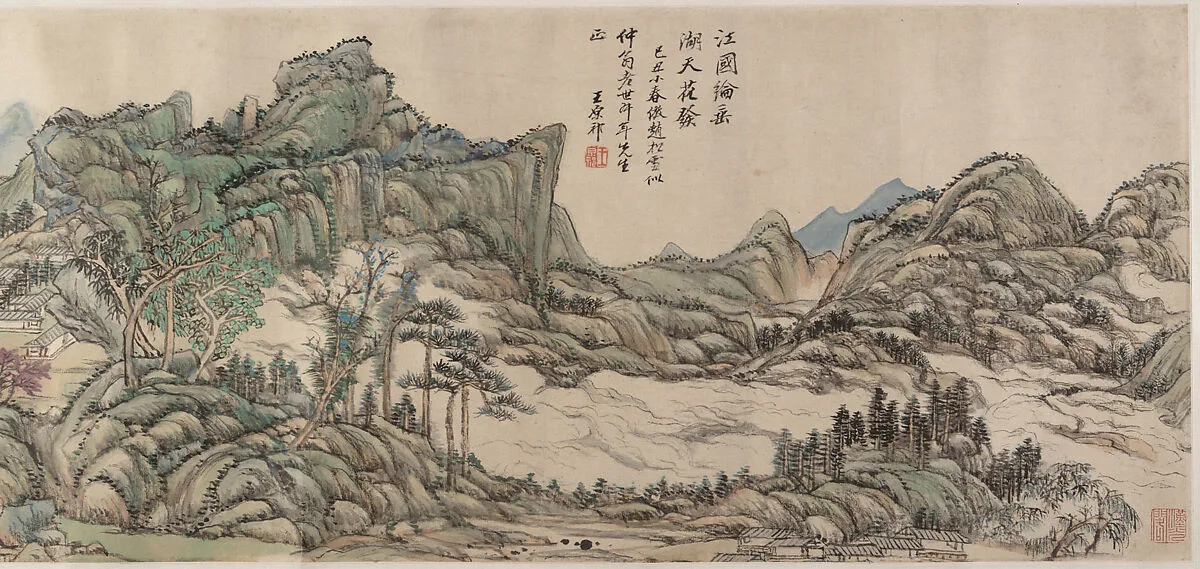 江國綸垂
湖天花發
己丑小春倣趙松雪似
仲翁老世年先生
正
王原祁